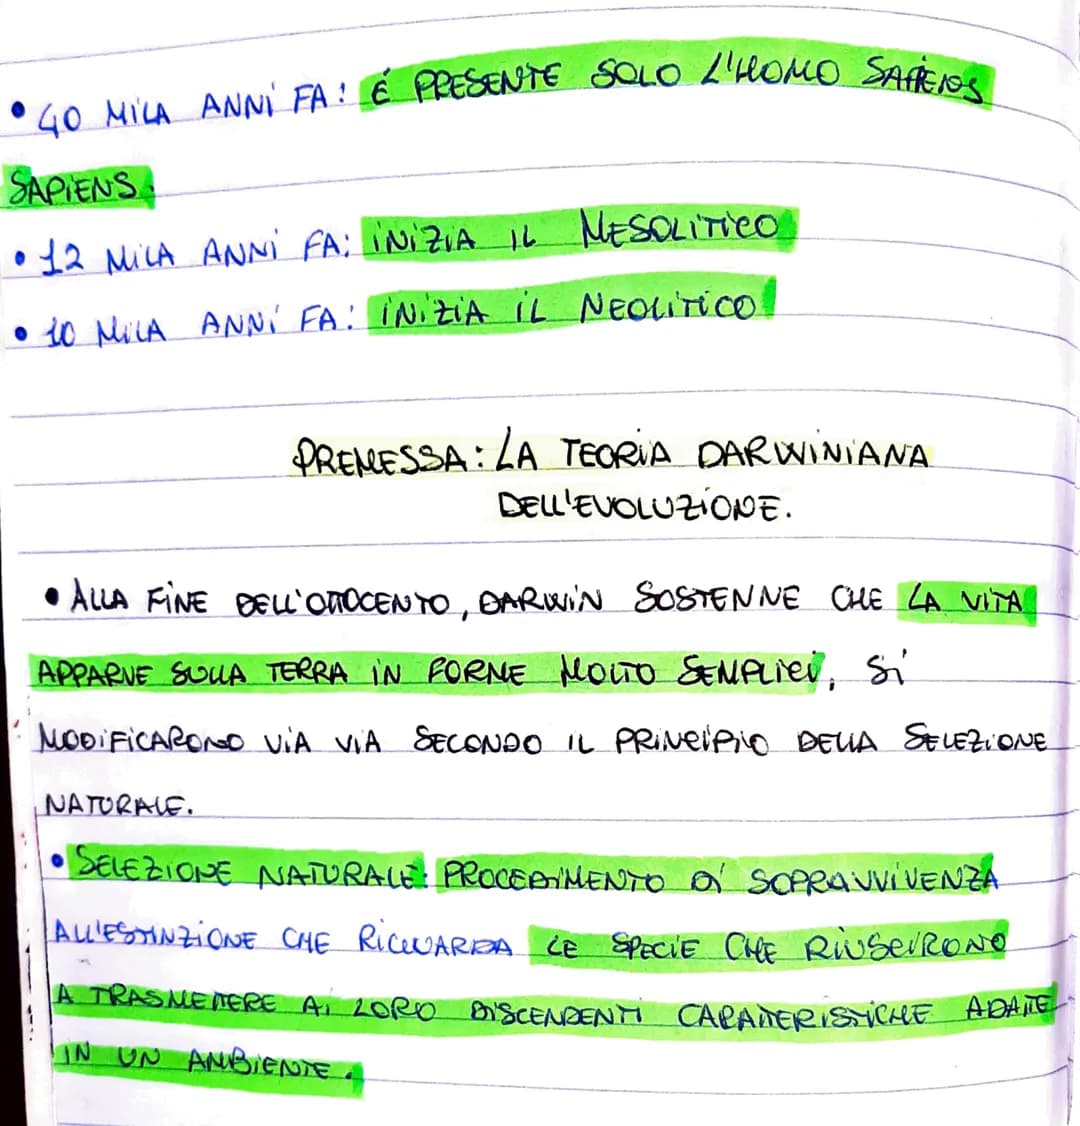 • 40 MILA ANNI FA: É PRESENTE SOLO L'HOMO SAPIENS
SAPIENS.
• 12 MILA ANNI FA: INIZIA IL MESOLITICO
• 10 MILA ANNI FA: INIZIA IL NEOLITICO
PREMESSA: LA TEORIA DARWINIANA
DELL'EVOLUZIONE.
• ALLA FINE DELL'OTTOCENTO, DARWIN SOSTENNE CHE LA VITA
APPARVE SULLA TERRA IN FORME MOLTO SEMPLICI, SI
MODIFICARONO VIA VIA SECONDO IL PRINCIPIO DELLA SELEZIONE
NATURALE.
• SELEZIONE NATURALE: PROCEDIMENTO DI SOPRAVVIVENZA
ALL'ESTINZIONE CHE RIGUARDA LE SPECIE CHE RIUSCIRONO
A TRASMETTERE AI LORO DISCENDENTI CARATTERISTICHE ADATTE
IN UN AMBIENTE.